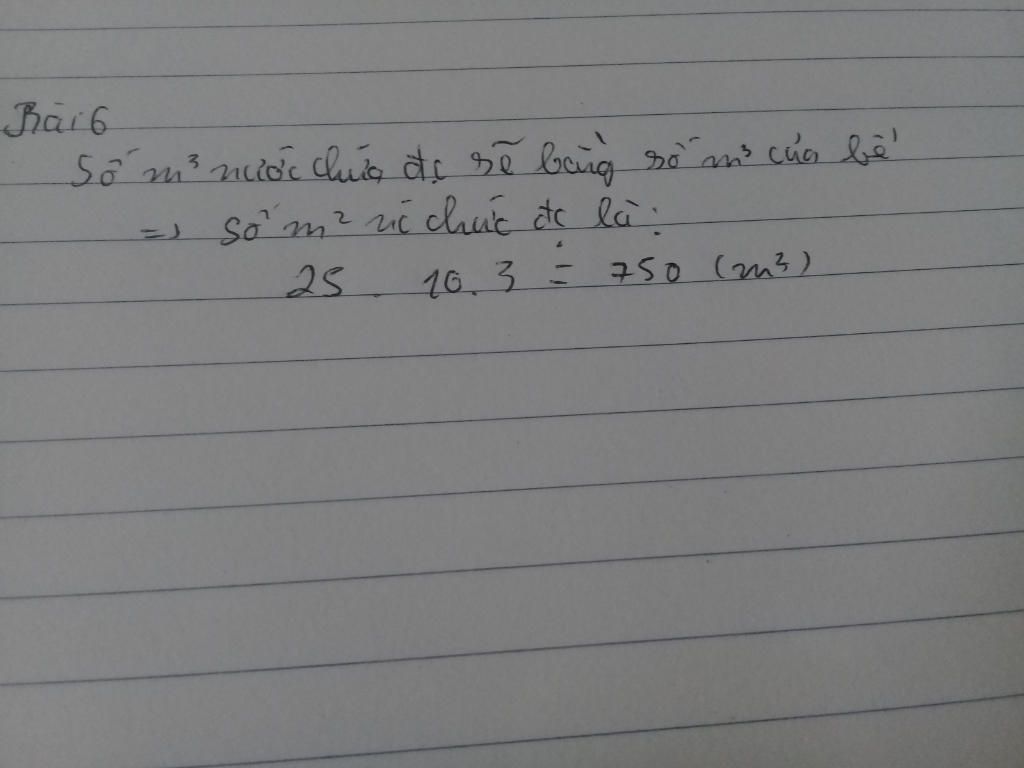 Bài 6
Số m³ nước chứa đc sẽ bằng số m³ của bể
=> số m² nc chứa đc là:
25 . 10 . 3 = 750 (m³)